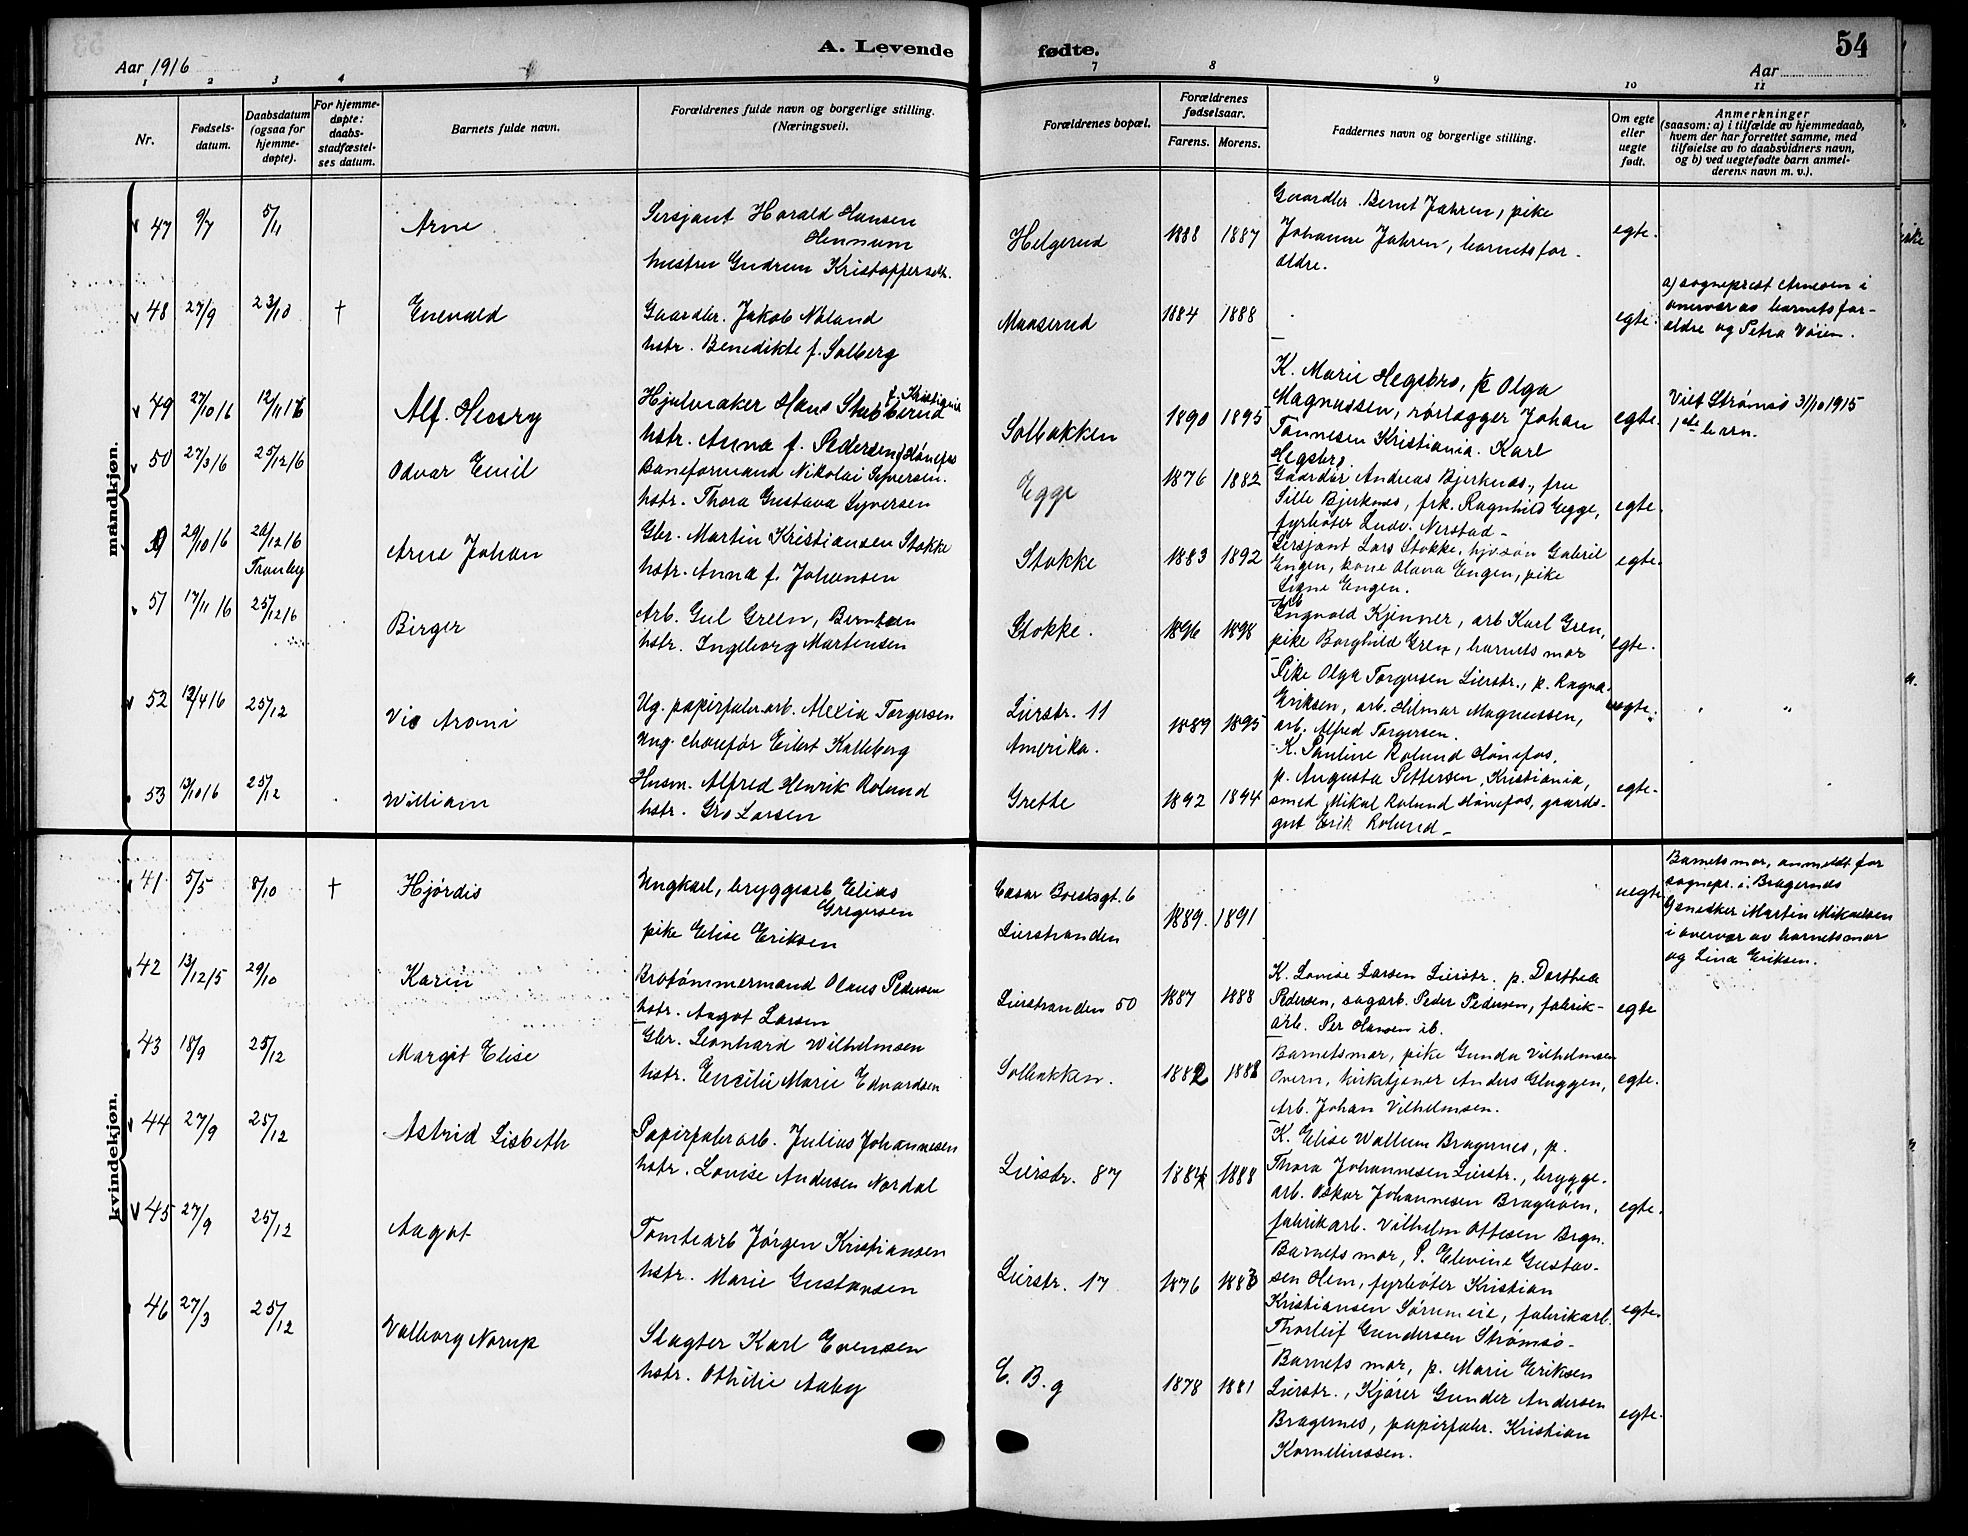 A. Levende fødte.
54
Aar 1916
Aar
1 2 3 4 7 8 9 10 11
Nr.
Fødsels-
datum.
Daabsdatum
(ogsaa for
hjemme-
døpte).
For hjemme-
døpte:
daabs-
stadfæstel-
ses datum.
Barnets fulde navn.
Forældrenes fulde navn og borgerlige stilling.
(Næringsvei).
Forældrenes bopæl.
Forældrenes
fødselsaar.
Farens. Morens.
Faddernes navn og borgerlige stilling.
Om egte
eller
uegte
født.
Anmerkninger
(saasom: a) i tilfælde av hjemmedaab,
hvem der har forrettet samme, med
tilføielse av to daabsvidners navn,
og b) ved uegtefødte barn anmel-
derens navn m. v.).
mandkjøn.
47 9/7 5/11 Arne
Sersjant Harald Hansen
Hennum
hustru Gudrun Kristoffersdt.
Helgerud 1888 1887
Gaardbr. Bernt Jahren, pike
Johanne Jahren, barnets for-
ældre.
egte.
48 27/9 23/10 † Enevald
Gaardbr. Jakob Nøland
hstr. Benedikte f. Solberg
Maaserud 1884 1888
egte.
a) sogneprest Arnesen i
overvær av barnets for-
ældre og Petra Vøien.
49 27/10 16 12/11 16 Alf. Henry
Hjulmaker Hans Stubberud f. Kristiania
hstr. Anna f. Pedersen f. Hønefos
Solbakken 1890 1895
K. Marie Hegsbro, p. Olga
Magnussen, rørlægger Johan
Tønnesen Kristiania. Karl
Hegsbro
egte.
Viet Strømsø 31/10 1915
1ste barn.
50 27/3 16 25/12 16 Odvar Emil
Baneformand Nikolai Syversen.
hstr. Thora Gustava Syversen
Egge 1876 1882
Gaardbr Andreas Bjerknæs, fru
Sille Bjerknæs, frk. Ragnhild Egge,
fyrbøter Ludv. Nerstad -
egte.
29/10 16 26/12 16
Tranby
Arne Johan
Gbr. Martin Kristiansen Stokke
hstr. Anna f. Johansen
Stokke 1883 1892
Sersjant Lars Stokke, hjv.søn Gabriel
Engen, kone Olava Engen, pike
Signe Engen.
egte.
51 17/11 16 25/12 16 Birger
Arb. Gul Green, Berntsen
hstr. Ingeborg Martensen
Stokke. 1896 1898
Arb
Ingvald Kjenner, arb Karl Gren,
pike Borghild Gren, barnets mor
egte.
52 12/4 16 25/12 Vis Aroni
Ug. papirfabr. arb. Alexia Torgersen
Ung. chaufør Eilert Kalleberg
Lierstr. 11
Amerika.
1889 1895
Pike Olga Torgersen Lierstr., p. Ragna
Eriksen, arb. Hilmar Magnussen,
arb. Alfred Torgersen.
uegte.
53 13/10 16 25/12 William
Husm. Alfred Henrik Rolund
hstr. Gro Larsen
Grette 1892 1894
K. Pauline Rolund Hønefos,
p. Augusta Pettersen, Kristiania,
smed Mikal Rolund Hønefos, gaards-
gut Erik Rolund -
egte.
kvindekjøn.
41 5/5 8/10 † Hjørdis
Ungkarl, bryggearb Elias
Gregersen
pike Elise Eriksen
Cæsar Boeskgt. 6
Lierstranden
1889. 1891
uegte
Barnets mor, anmeldt for
sognepr. i Bragernes
Gjensker Martin Mikaelsen
i overvær av barnets mor
og Lina Eriksen.
42 13/12 15 29/10 Karin
Brotømmermand Olaus Pedersen
hstr. Aagot Larsen
Lierstranden 50 1887 1888
K. Lovise Larsen Lierstr. p. Dorthea
Pedersen, sagarb. Peder Pedersen, fabrik-
arb. Per Hansen ib.
egte
43 18/9 25/12 Margit Elise
Gbr. Leonhard Wilhelmsen
hstr. Emilie Marie Edvardsen
Solbakken. 1882 1888
Barnets mor, pike Gunda Vilhelmsen
Overn, kirketjener Anders Gluggen,
Arb. Johan Vilhelmsen.
egte.
44 27/9 25/12 Astrid Lisbeth
Papirfabr arb. Julius Johannesen
hstr. Lovise Andersen Nordal
Lierstr. 87 1884 1888
K. Elise Wallum Bragernes, p.
Thora Johannesen Lierstr., brygge-
arb. Oskar Johannesen Bragøen,
fabrikarb. Vilhelm Ottesen Brgn.
egte.
45 27/9 25/12 Aagot
Tomtearb Jørgen Kristiansen
hstr. Marie Gustavsen
Lierstr. 17 1876 1883
Barnets mor, P. Elevine Gustav-
sen Olem, fyrbøter Kristian
Kristiansen Sørumeie, fabrikarb.
Thorleif Gundersen Strømsø -
egte.
46 27/3 25/12 Valborg Norup
Slagter Karl Evensen
hstr. Othilie Aaby
E. B. g 1878 1881
Barnets mor, p. Marie Eriksen
Lierstr., Kjører Gunder Andersen
Bragernes, papirfabr. Kristian
Korneliussen.
egte.